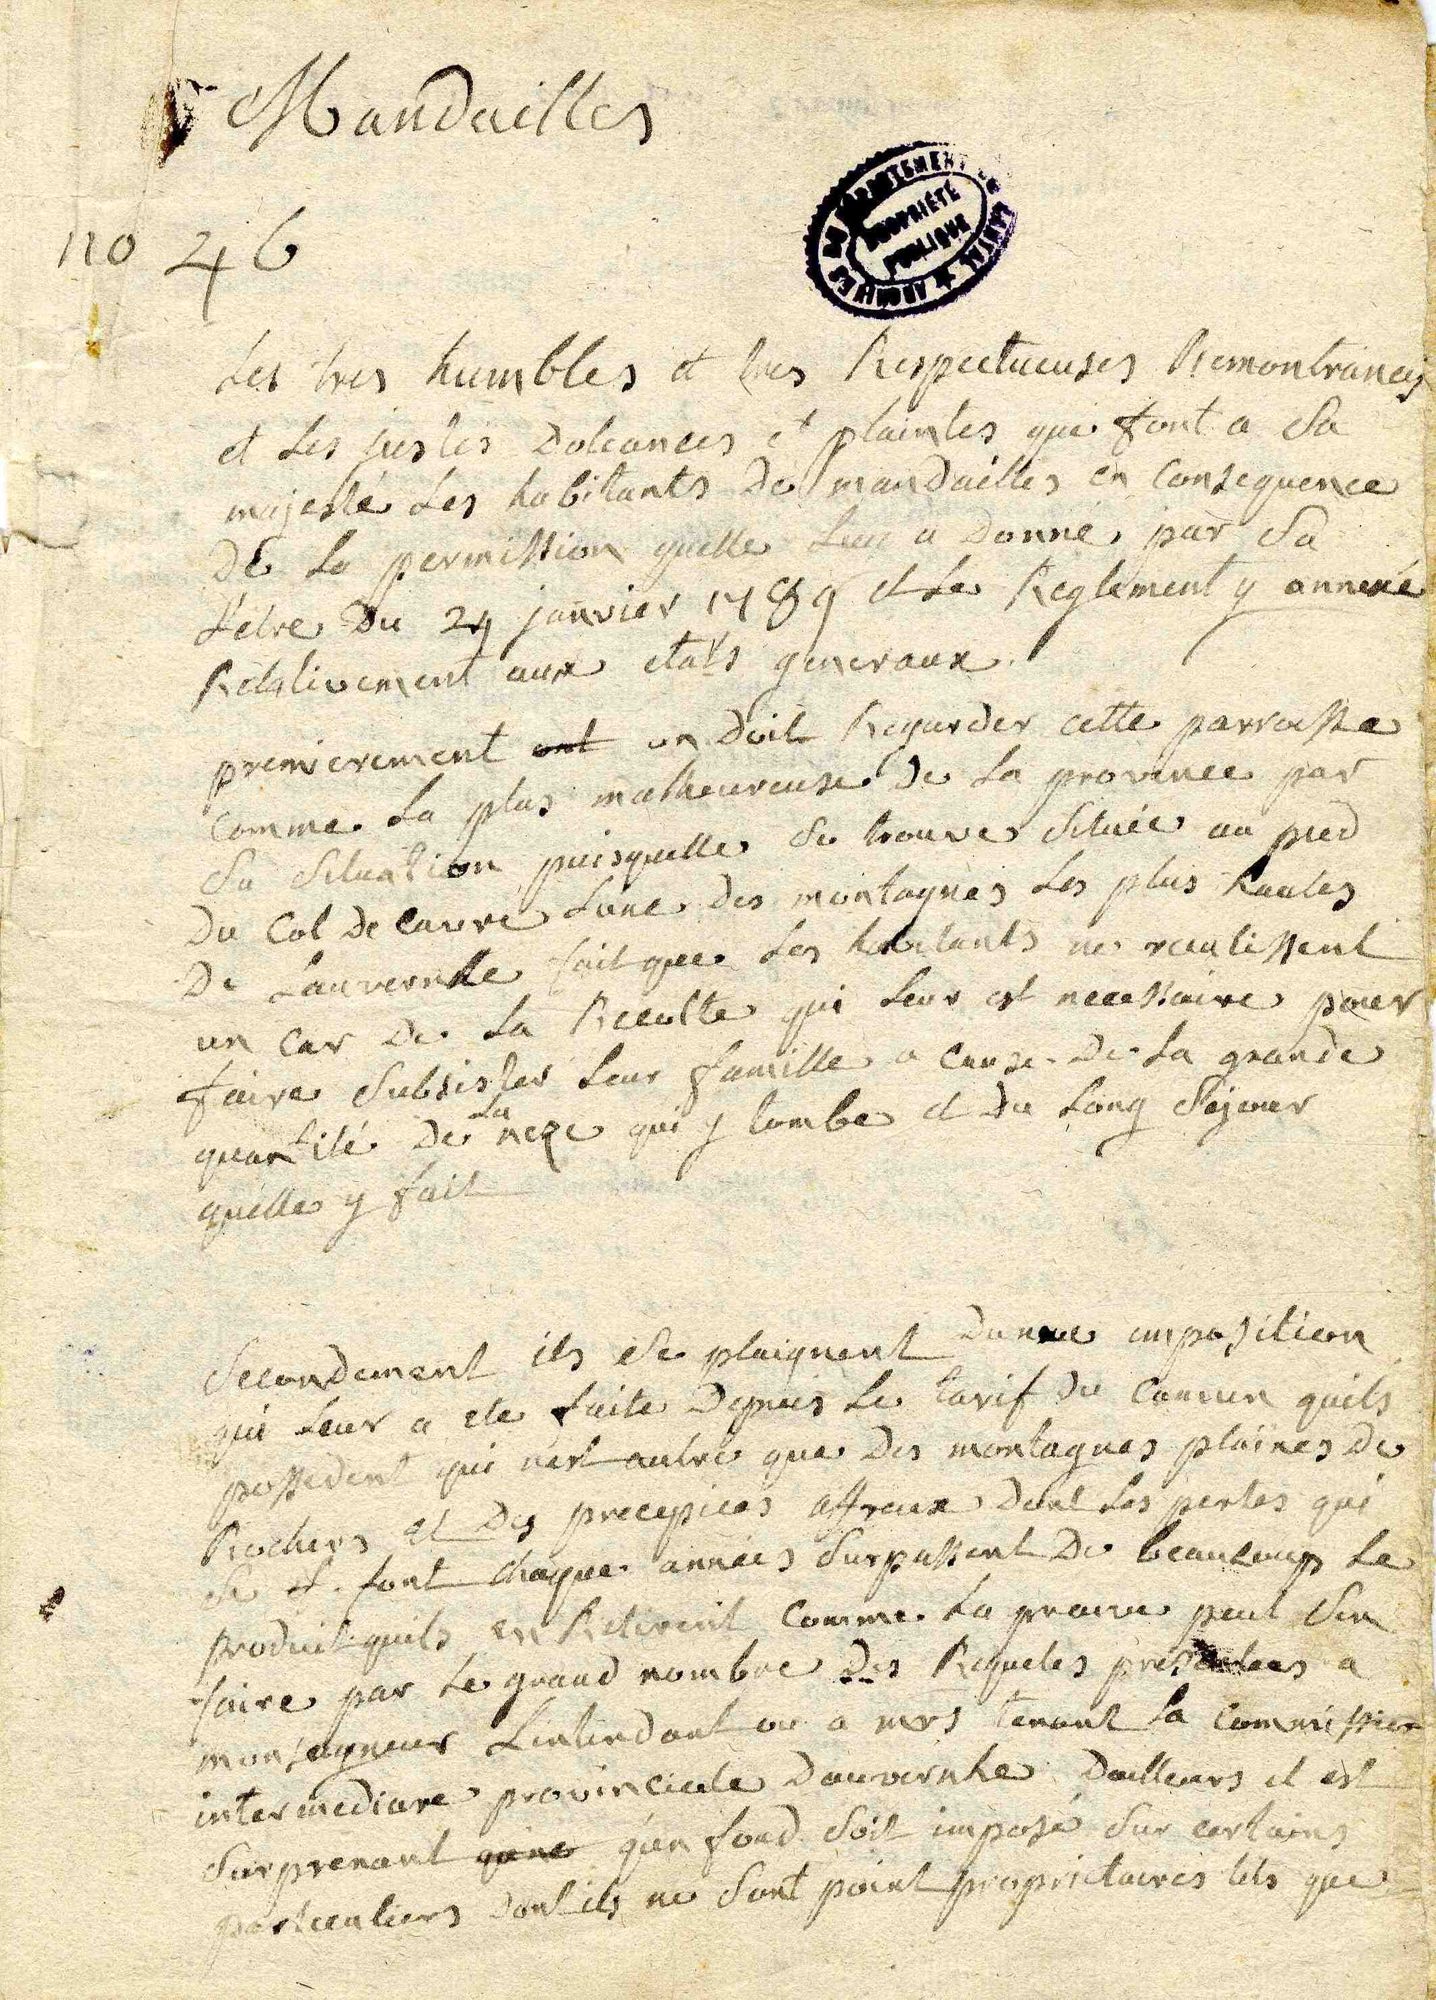 Mandailles
ARCHIVES DU DEPARTEMENT DU CANTAL
PROPRIÉTÉ
PUBLIQUE
no 46
Les tres humbles et tres Respectueuses Remontrances
et Les justes Doleances et plaintes que font a Sa
majesté Les habitants De mandailles en Consequence
De La permission quelle Leur a Donné par Sa
Letre Du 24 janvier 1789 et Le Reglement y annexé
Relativement aux etats generaux.
premierement ont on Doit Regarder cette parroisse
Comme La plus malheureuse De La province par
Sa Situation puisquelle Se trouve Située au pied
Du Col De Cauvre Lune Des montagnes Les plus hautes
De Lauvernhe fait que Les habitants ne reculissent
un Car De La Recolte qui Leur est necessaire pour
faire Subsister Leur famille a Cause De La grande
quantité De La nege qui y tombe et Du Long Sejour
quelle y fait
Secondement ils Se plaignent Dunne imposition
qui Leur a ete faite Depuis Le tarif Du Comun quils
possedent qui nest autre que Des montagnes plaines De
Rochers et Des precepices affreux Dont Les pertes qui
Se font chaque années Surpassent De beaucoup Le
produit quils en Retirent Comme La preuve peut Sen
faire par Le grand nombre Des Requetes presentees a
monseigneur Lintendant ou a mrs tenant La Commission
intermediare provinciale Dauvernhe Dailleurs il est
Surprenant quine quun fond Soit imposé Sur certains
particuliers Dont ils ne Sont point proprietaires tels que